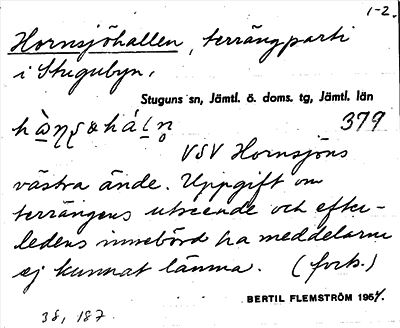 1-2.
Hornsjöhallen, terrängparti
i Stugubyn,
Stuguns sn, Jämtl. ö. doms. tg, Jämtl. län
379
VSV Hornsjöns
västra ände. Uppgift om
terrängens utseende och efter-
ledens innebörd ha meddelarna
ej kunnat lämna. (forts.)
BERTIL FLEMSTRÖM 1964.
38, 187.